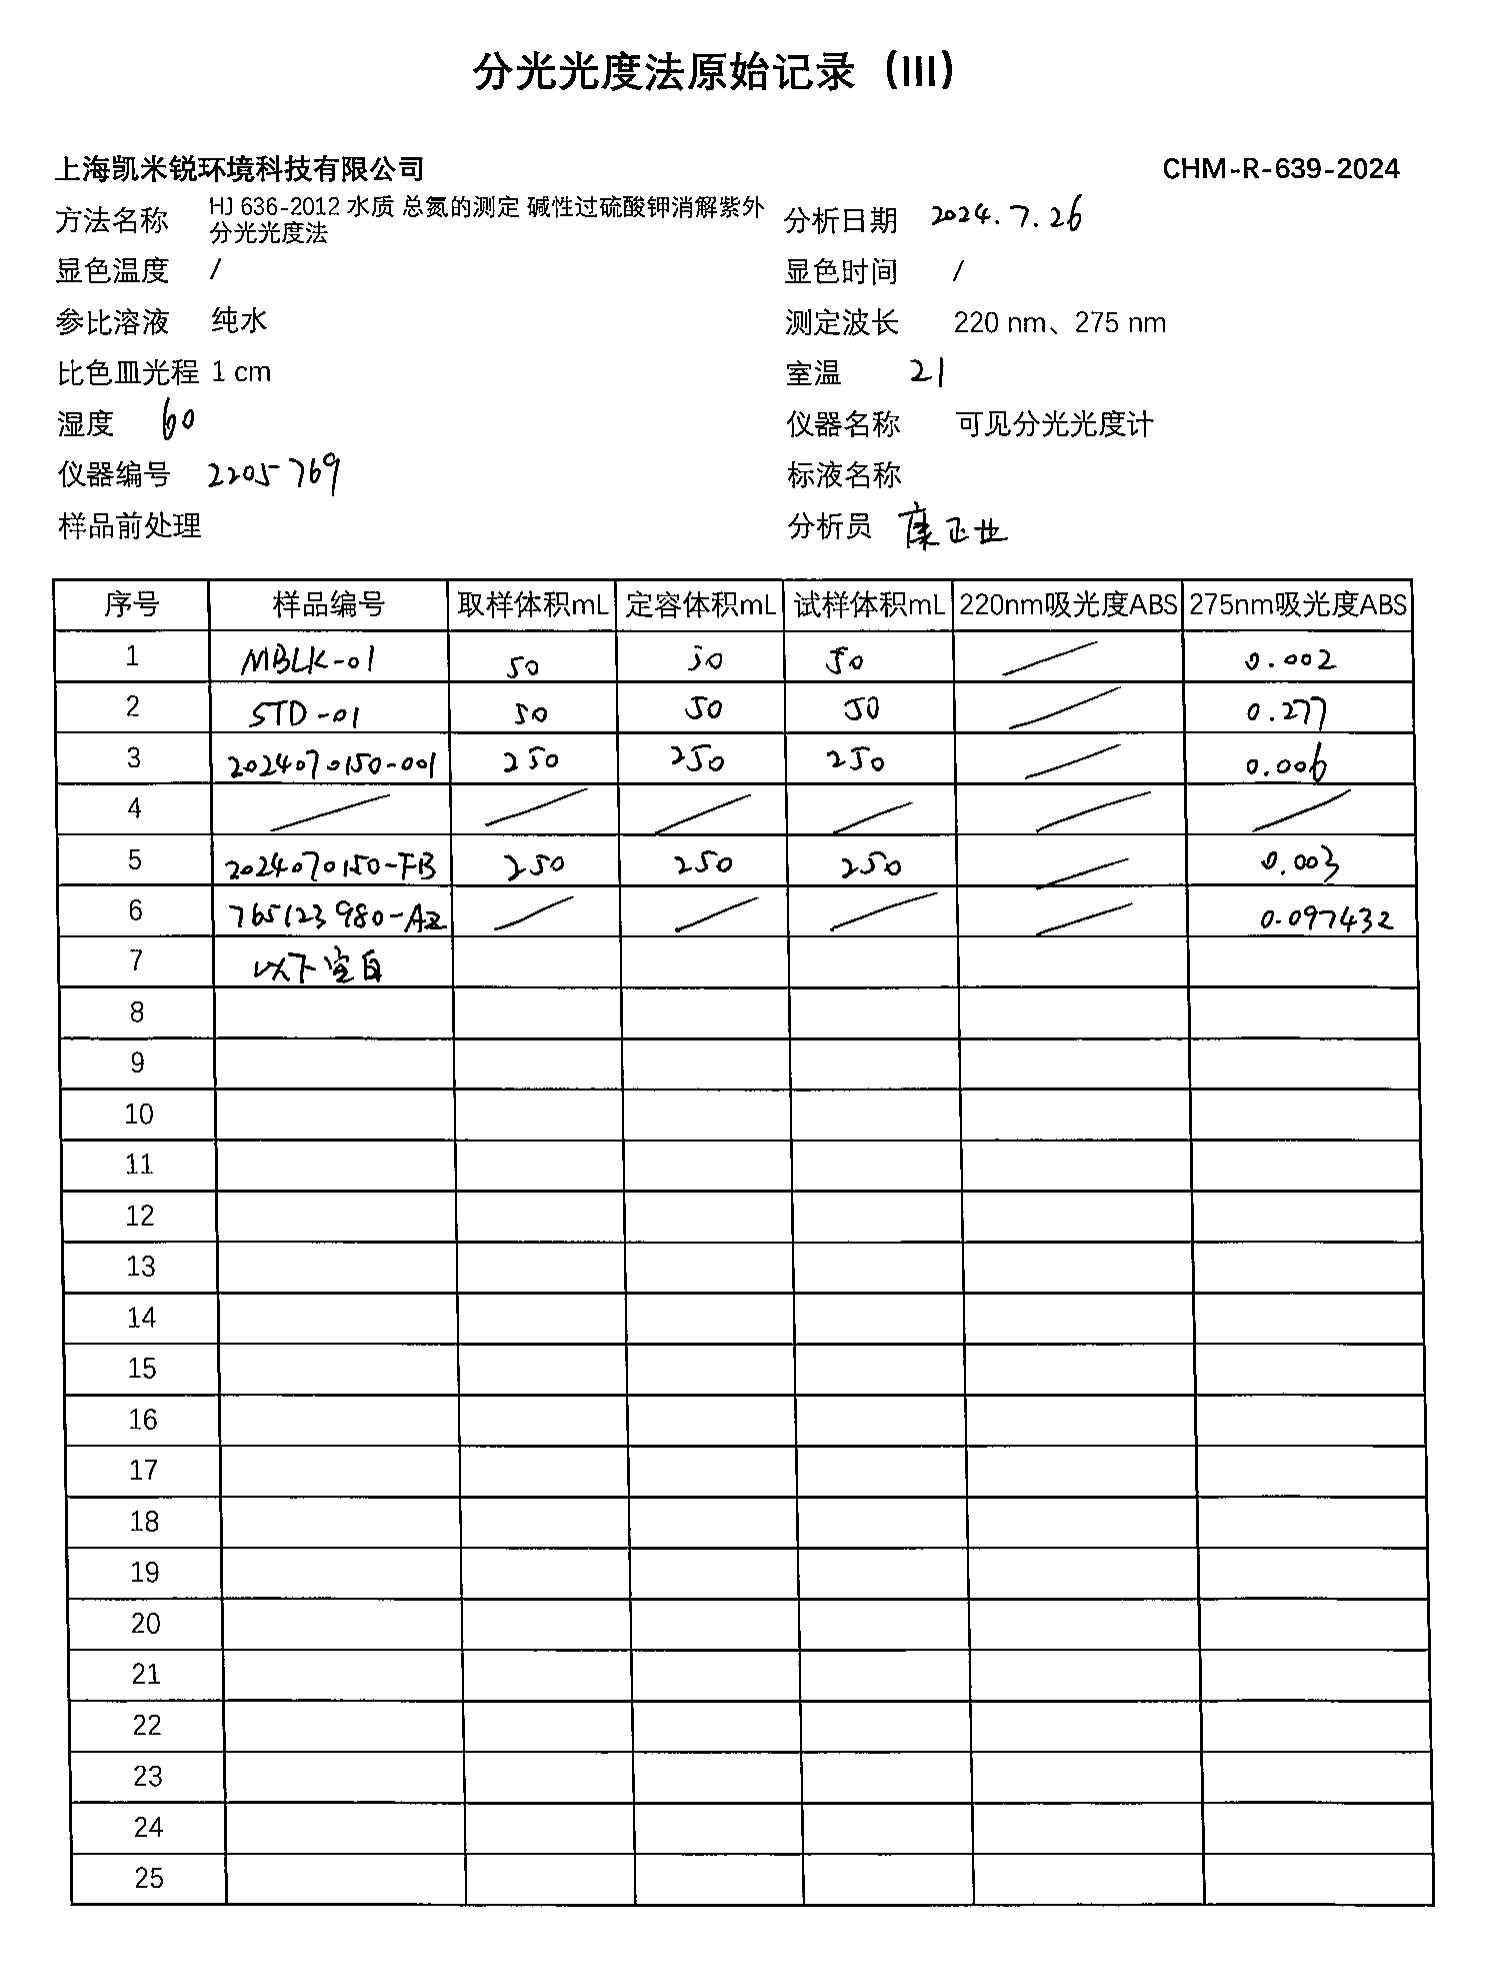 分光光度法原始记录（III）
上海凯米锐环境科技有限公司 CHM-R-639-2024
方法名称 HJ 636-2012 水质 总氮的测定 碱性过硫酸钾消解紫外分光光度法 分析日期 2024.7.26
显色温度 / 显色时间 /
参比溶液 纯水 测定波长 220 nm、275 nm
比色皿光程 1 cm 室温 21
湿度 60 仪器名称 可见分光光度计
仪器编号 2205769 标液名称
样品前处理 分析员 康正业
序号 样品编号 取样体积mL 定容体积mL 试样体积mL 220nm吸光度ABS 275nm吸光度ABS
1 MBLK-01 50 50 50 / 0.002
2 STD-01 50 50 50 / 0.277
3 2024070150-001 250 250 250 / 0.006
4 / / / / / /
5 2024070150-FB 250 250 250 / 0.003
6 765123980-AZ / / / / 0.097432
7 以下空白
8
9
10
11
12
13
14
15
16
17
18
19
20
21
22
23
24
25